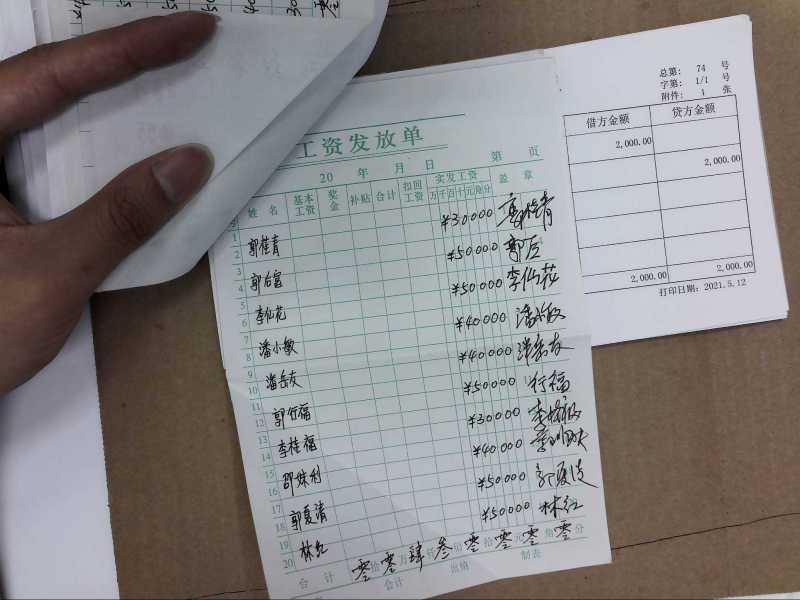 总第: 74 号
字第: 1/1 号
附件: 1 张
借方金额 贷方金额
2,000.00
2,000.00
2,000.00 2,000.00
打印日期: 2021.5.12
工资发放单
20 年 月 日 第 页
姓名 基本工资 奖金 补贴 合计 扣回工资 实发工资 盖章
万千百十元角分
1 郭桂青 ¥30000
2
3 郭右宫 ¥50000 郭右
4
5 李仙花 ¥50000 李仙花
6
7 潘小敏 ¥40000 潘小敏
8
9 潘岳友 ¥40000 潘岳友
10
11 郭行福 ¥50000 行福
12
13 李桂福 ¥30000 李桂福
14
15 邵妹利 ¥40000
16
17 郭夏清 ¥50000 郭夏清
18
19 林红 ¥50000 林红
20
合计 零拾零万肆仟叁佰零拾零元零角零分
会计 出纳 制表